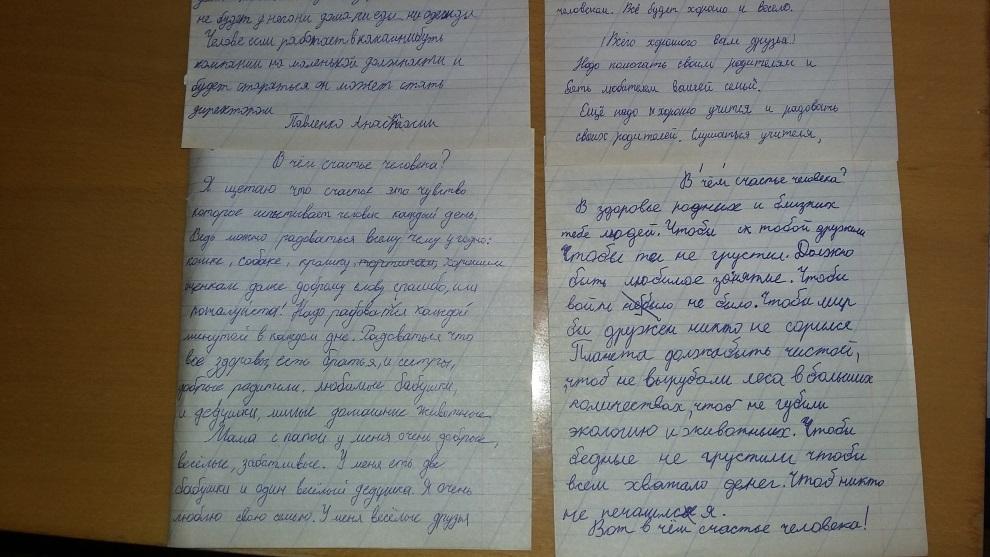 не будет у него ни дома ни еды ни одежды
Человек если работает в какойнибуть
компании на маленькой должности и
будет старатся он может стать
директором
Павленко Анастасии
В чём счастье человека?
Я щетаю что счастье это чувство
которое испытивает человек каждый день.
Ведь можно радоваться всему чему угодно:
кошке, собаке, кролику, хорошим
оценкам даже доброму слову спасибо, или
пожалуйста! Надо радоватся каждой
минутой в каждом дне. Радоваться что
все здоровы, есть братья, и сестры,
добрые родители, любимые бабушки,
и дедушки, милые домашние животные
Мама с папой у меня очень добрые,
весёлые, заботливые. У меня есть две
бабушки и один весёлый дедушка. Я очень
люблю свою семью. У меня весёлые друзья
человеком. Всё будет хорошо и весело.
(Всего хорошого вам друзья!)
Надо помогать своим родителям и
быть любителем вашей семьи.
Ещё надо хорошо учится и радовать
своих родителей. Слушаться учителя,
В чём счастье человека?
В здоровье родных и близких
тебе людей. Чтоби их тобой дружили
Чтобы ти не грустил. Должно
быть любимое занятие. Чтоби
войни не било. Чтоби мир
би дружен никто не сорился
Планета должна быть чистой,
чтоб не вырубали леса в больших
количествах, чтоб не губили
экологию и животных. Чтоби
бедные не грустили чтоби
всем хватало денег. Чтоб никто
не печалился.
Вот в чём счастье человека!